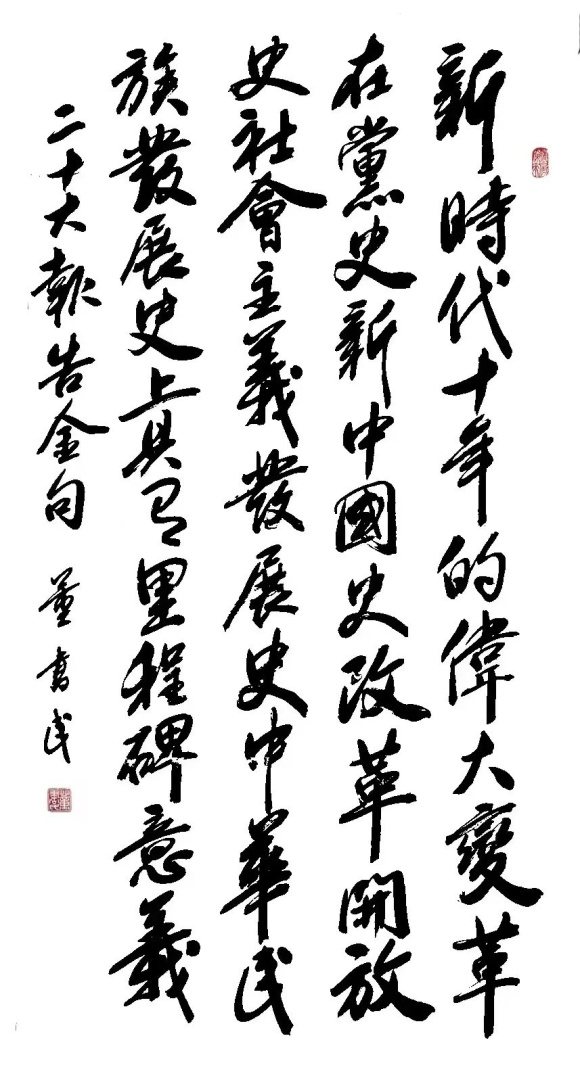 新時代十年的偉大變革
在黨史新中國史改革開放
史社會主義發展史中華民
族發展史上具有里程碑意義
二十大報告金句 董書民